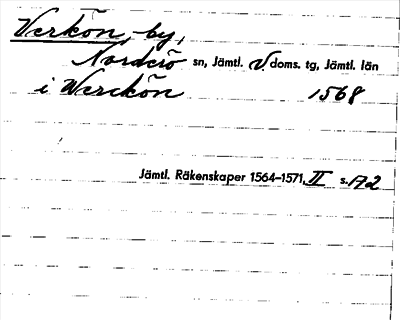 Verkön, by,
Norderö sn, Jämtl. V. doms. tg, Jämtl. län
i Werckön 1568
Jämtl. Räkenskaper 1564–1571, II s. A2